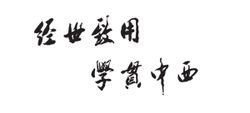 經世致用
學貫中西